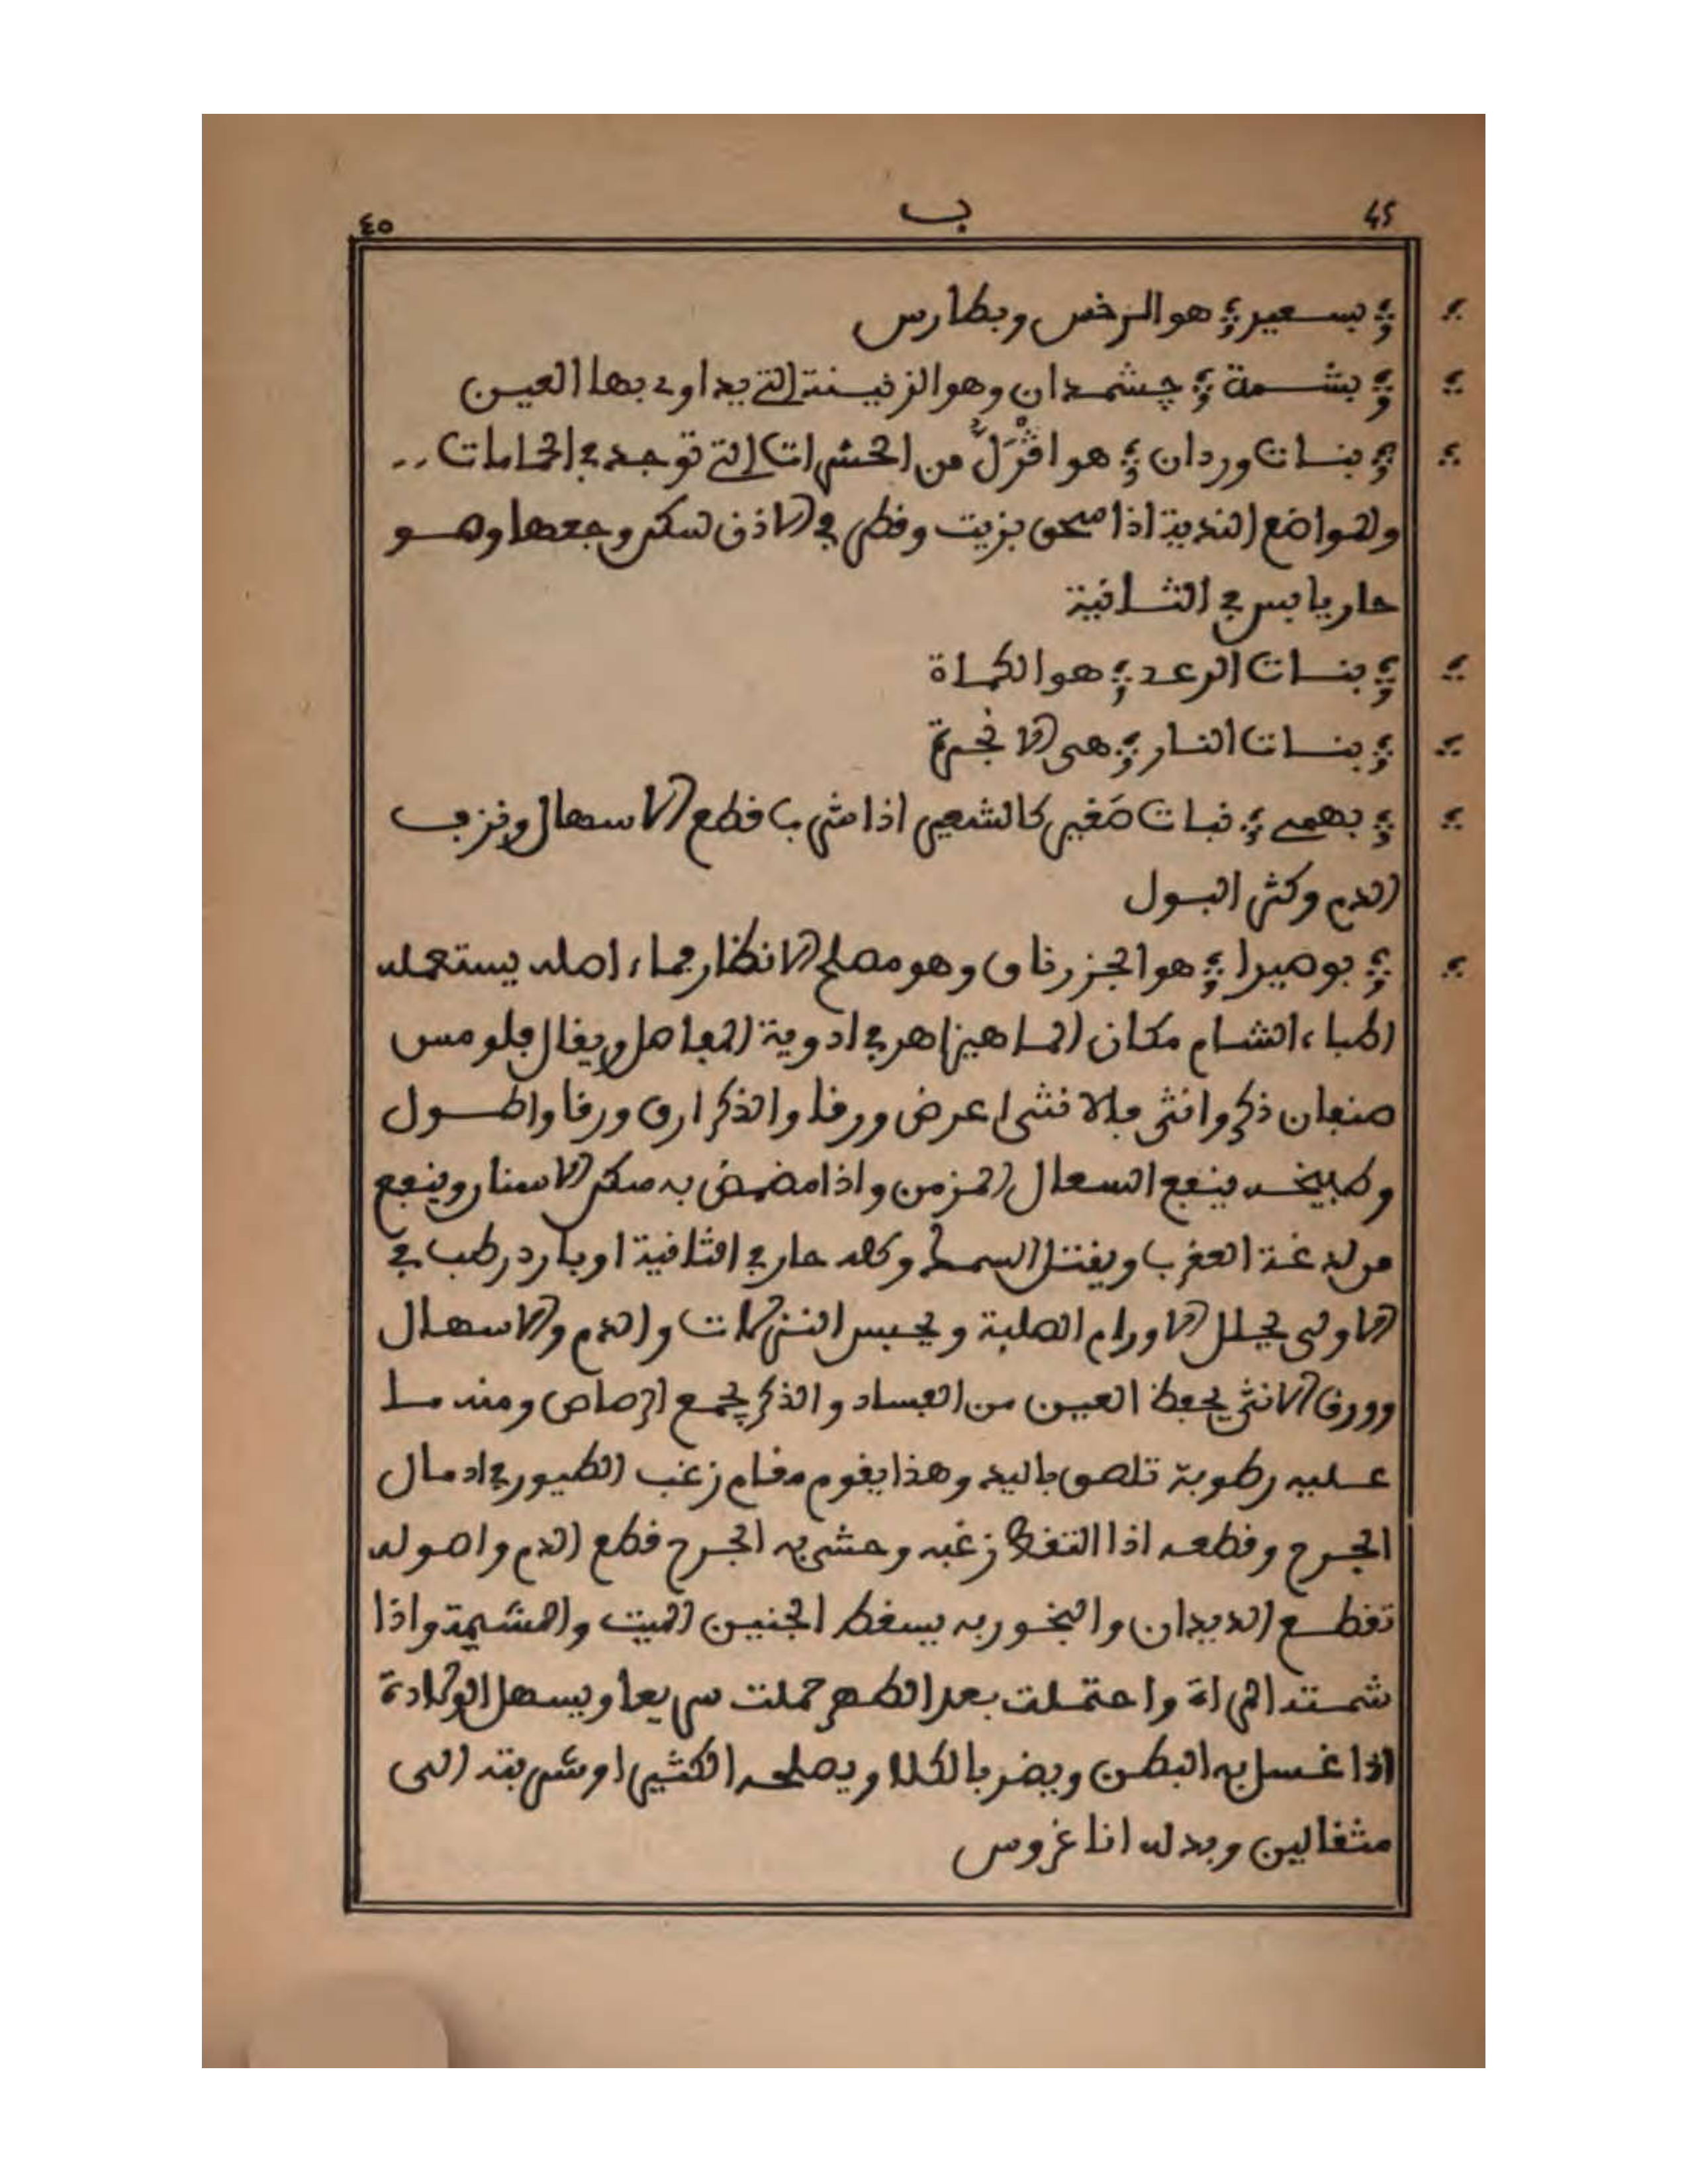 45 ب ٤٥
بسعير هو الرخس وبطارس
بشمة چشمدان وهو الزنينة التي يداوى بها العين
بنات وردان هو افْرَلُّ من الحشرات التي توجد في الحمامات
والمواضع الندية اذا سحق بزيت وقطر في الاذن سكن وجعها وهو
حار يابس في الثانية
بنات الرعد هو الكماة
بنات النار هي الانجرة
بهمى نبات صَغير كالشعير اذا شرب قطع الاسهال ونزف
الدم وكثر البول
بوصيرا هو الجزرناق وهو مصلح الانظار بماء اصله يستعمله
اطباء الشام مكان الماهيزاهر في ادوية المفاصل ويقال فلومس
صنفان ذكر وانثى فالانثى اعرض ورقا والذكر ارق ورقا واطول
وطبيخه ينفع السعال المزمن واذا مضمض به سكن الاسنان وينفع
من لدغة العقرب ويقتل السمك وكله حار في الثانية او بارد رطب في
الاولى يحلل الاورام الصلبة ويحبس النزلات والدم والاسهال
وورق الانثى يحفظ العين من الفساد والذكر يجمع الرصاص ومنه ما
عليه رطوبة تلصق باليد وهذا يقوم مقام زغب الطيور في ادمال
الجرح وقطعه اذا التقط زغبه وحشي به الجرح قطع الدم واصوله
تقطع الديدان والبخور به يسقط الجنين الميت والمشيمة واذا
شمته المراة واحتملت بعد الطهر حملت سريعا ويسهل الولادة
اذا غسل به البطن ويضر بالكلا ويصلحه الكثيرا وشربته الى
مثقالين وبدله اناغروس